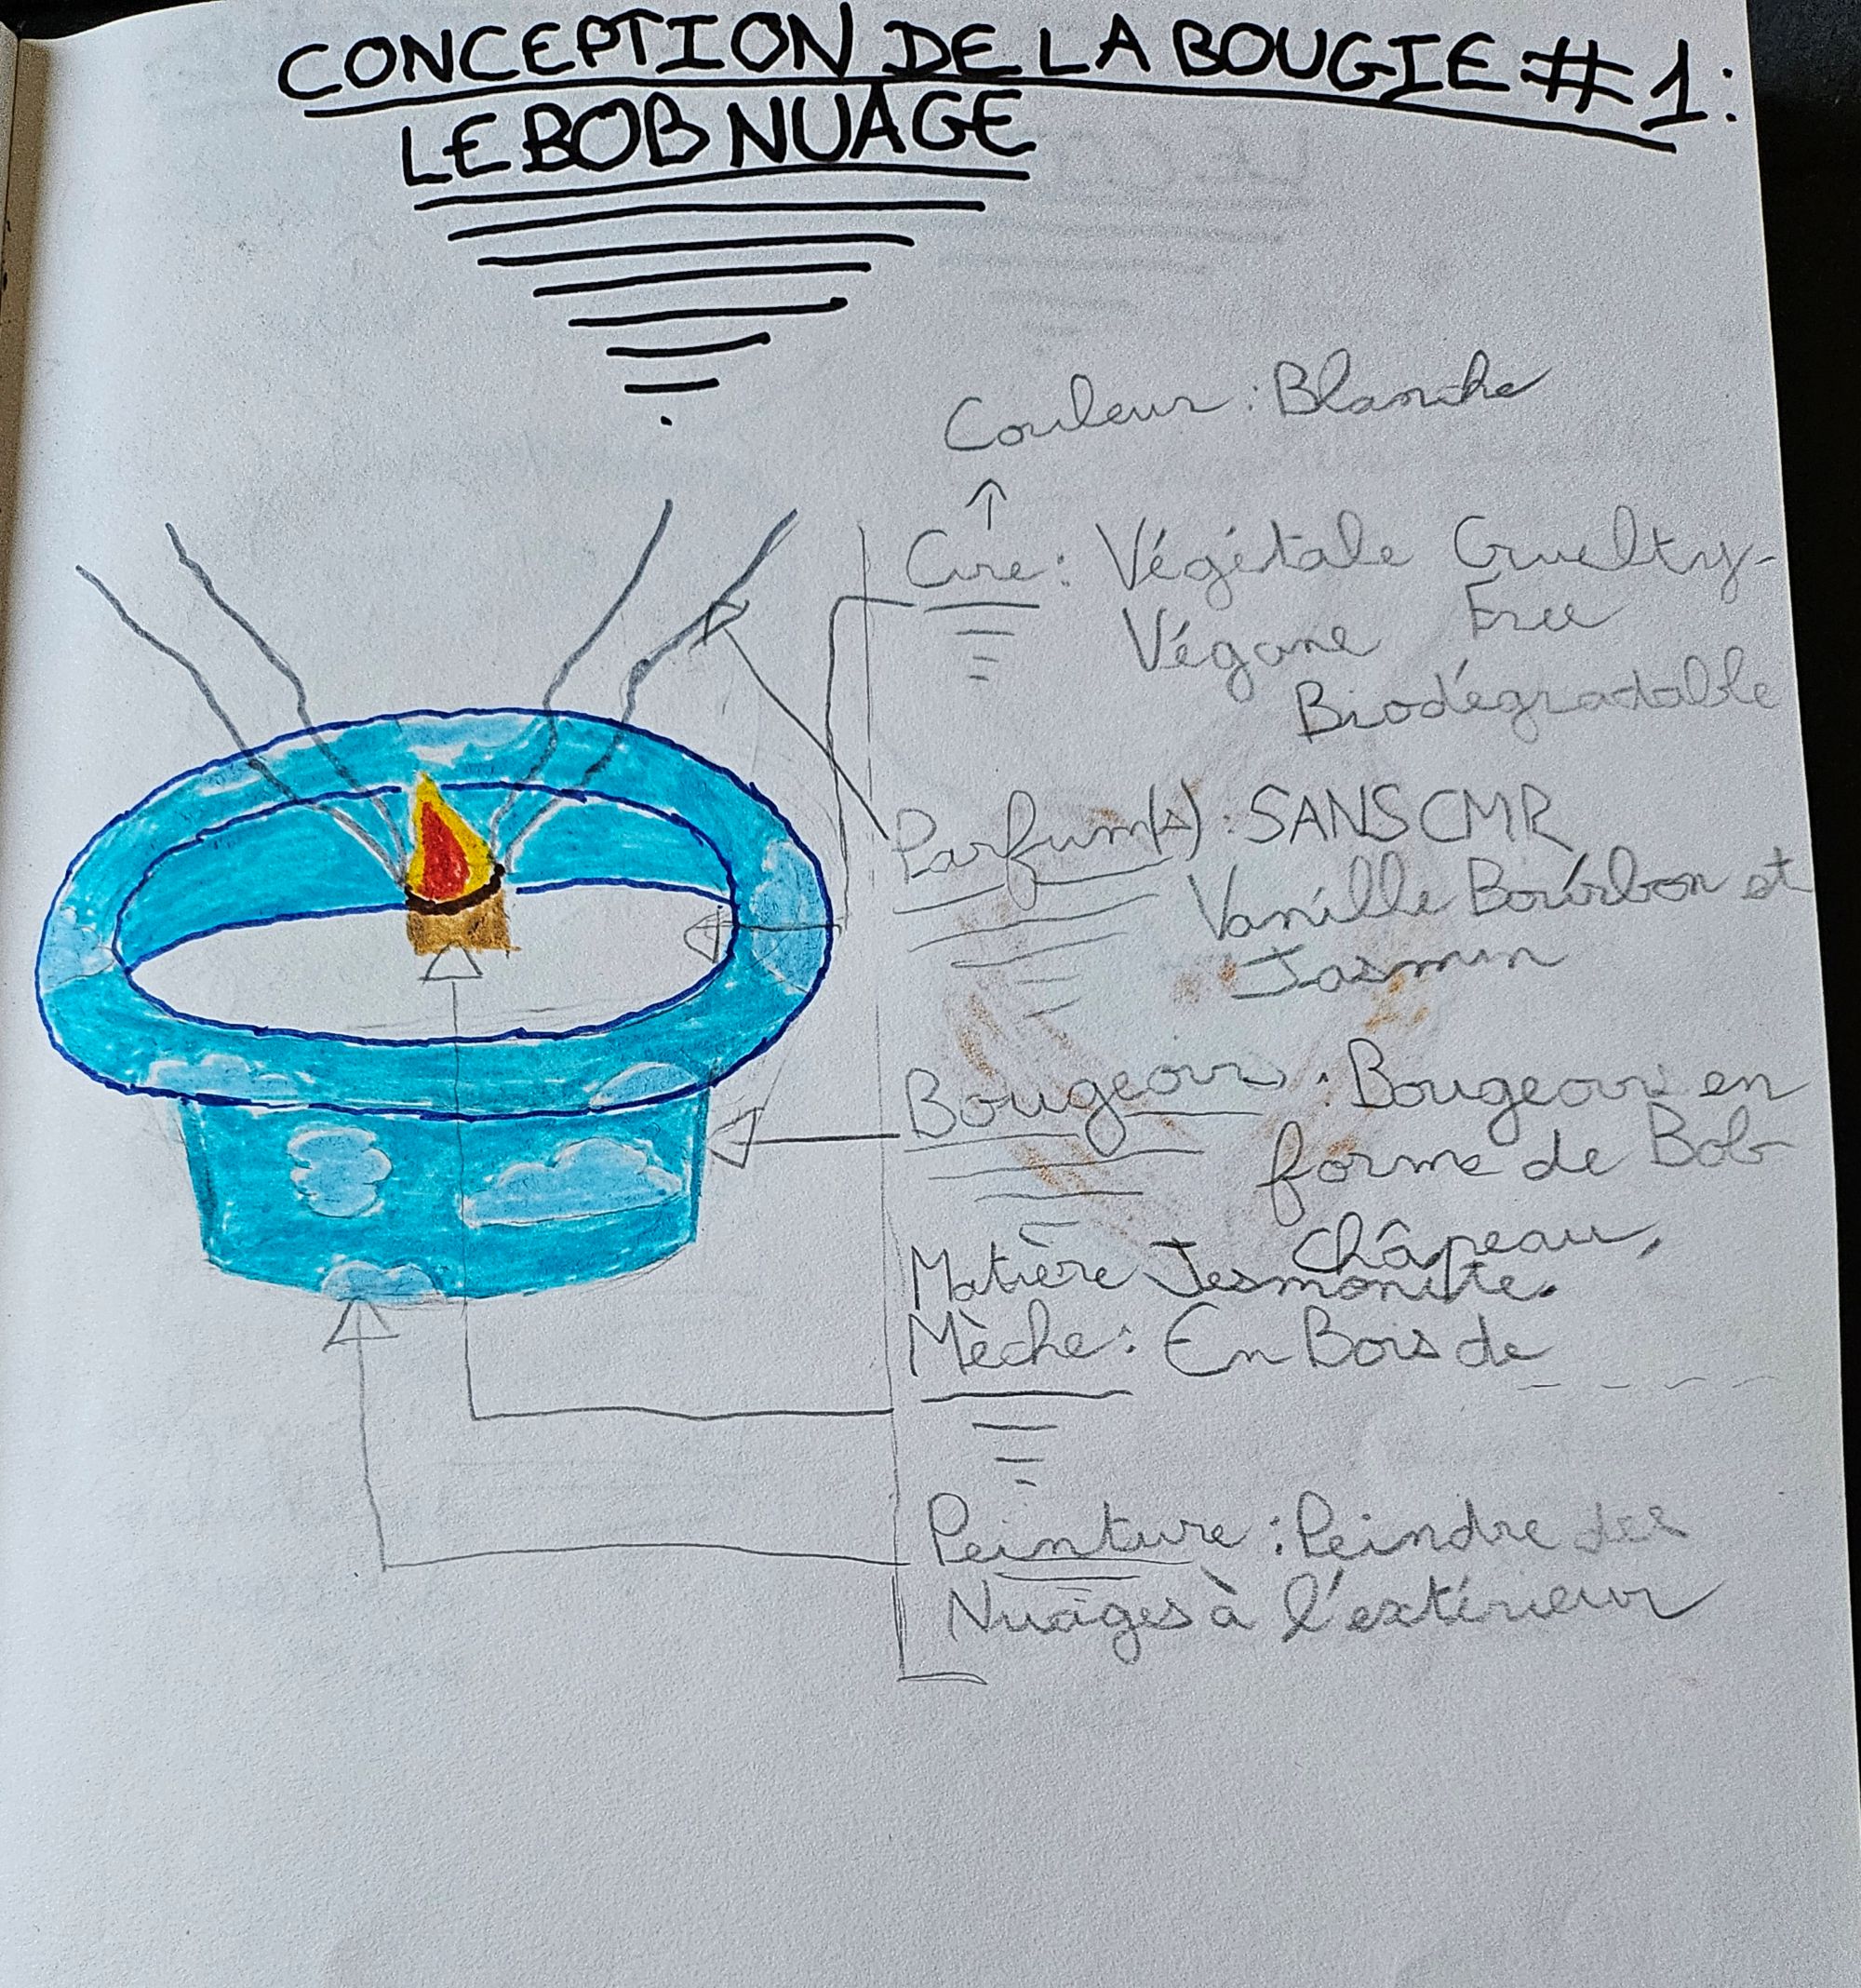 CONCEPTION DE LA BOUGIE #1:
LE BOB NUAGE
Couleur : Blanche
↑
Cire : Végétale Cruelty-
Free
Végane
Biodégradable
Parfum(s) : SANS CMR
Vanille Bourbon et
Jasmin
Bougeoir : Bougeoir en
forme de Bob
Châpeau,
Matière Jesmonite.
Mèche : En Bois de
Peinture : Peindre des
Nuages à l'extérieur